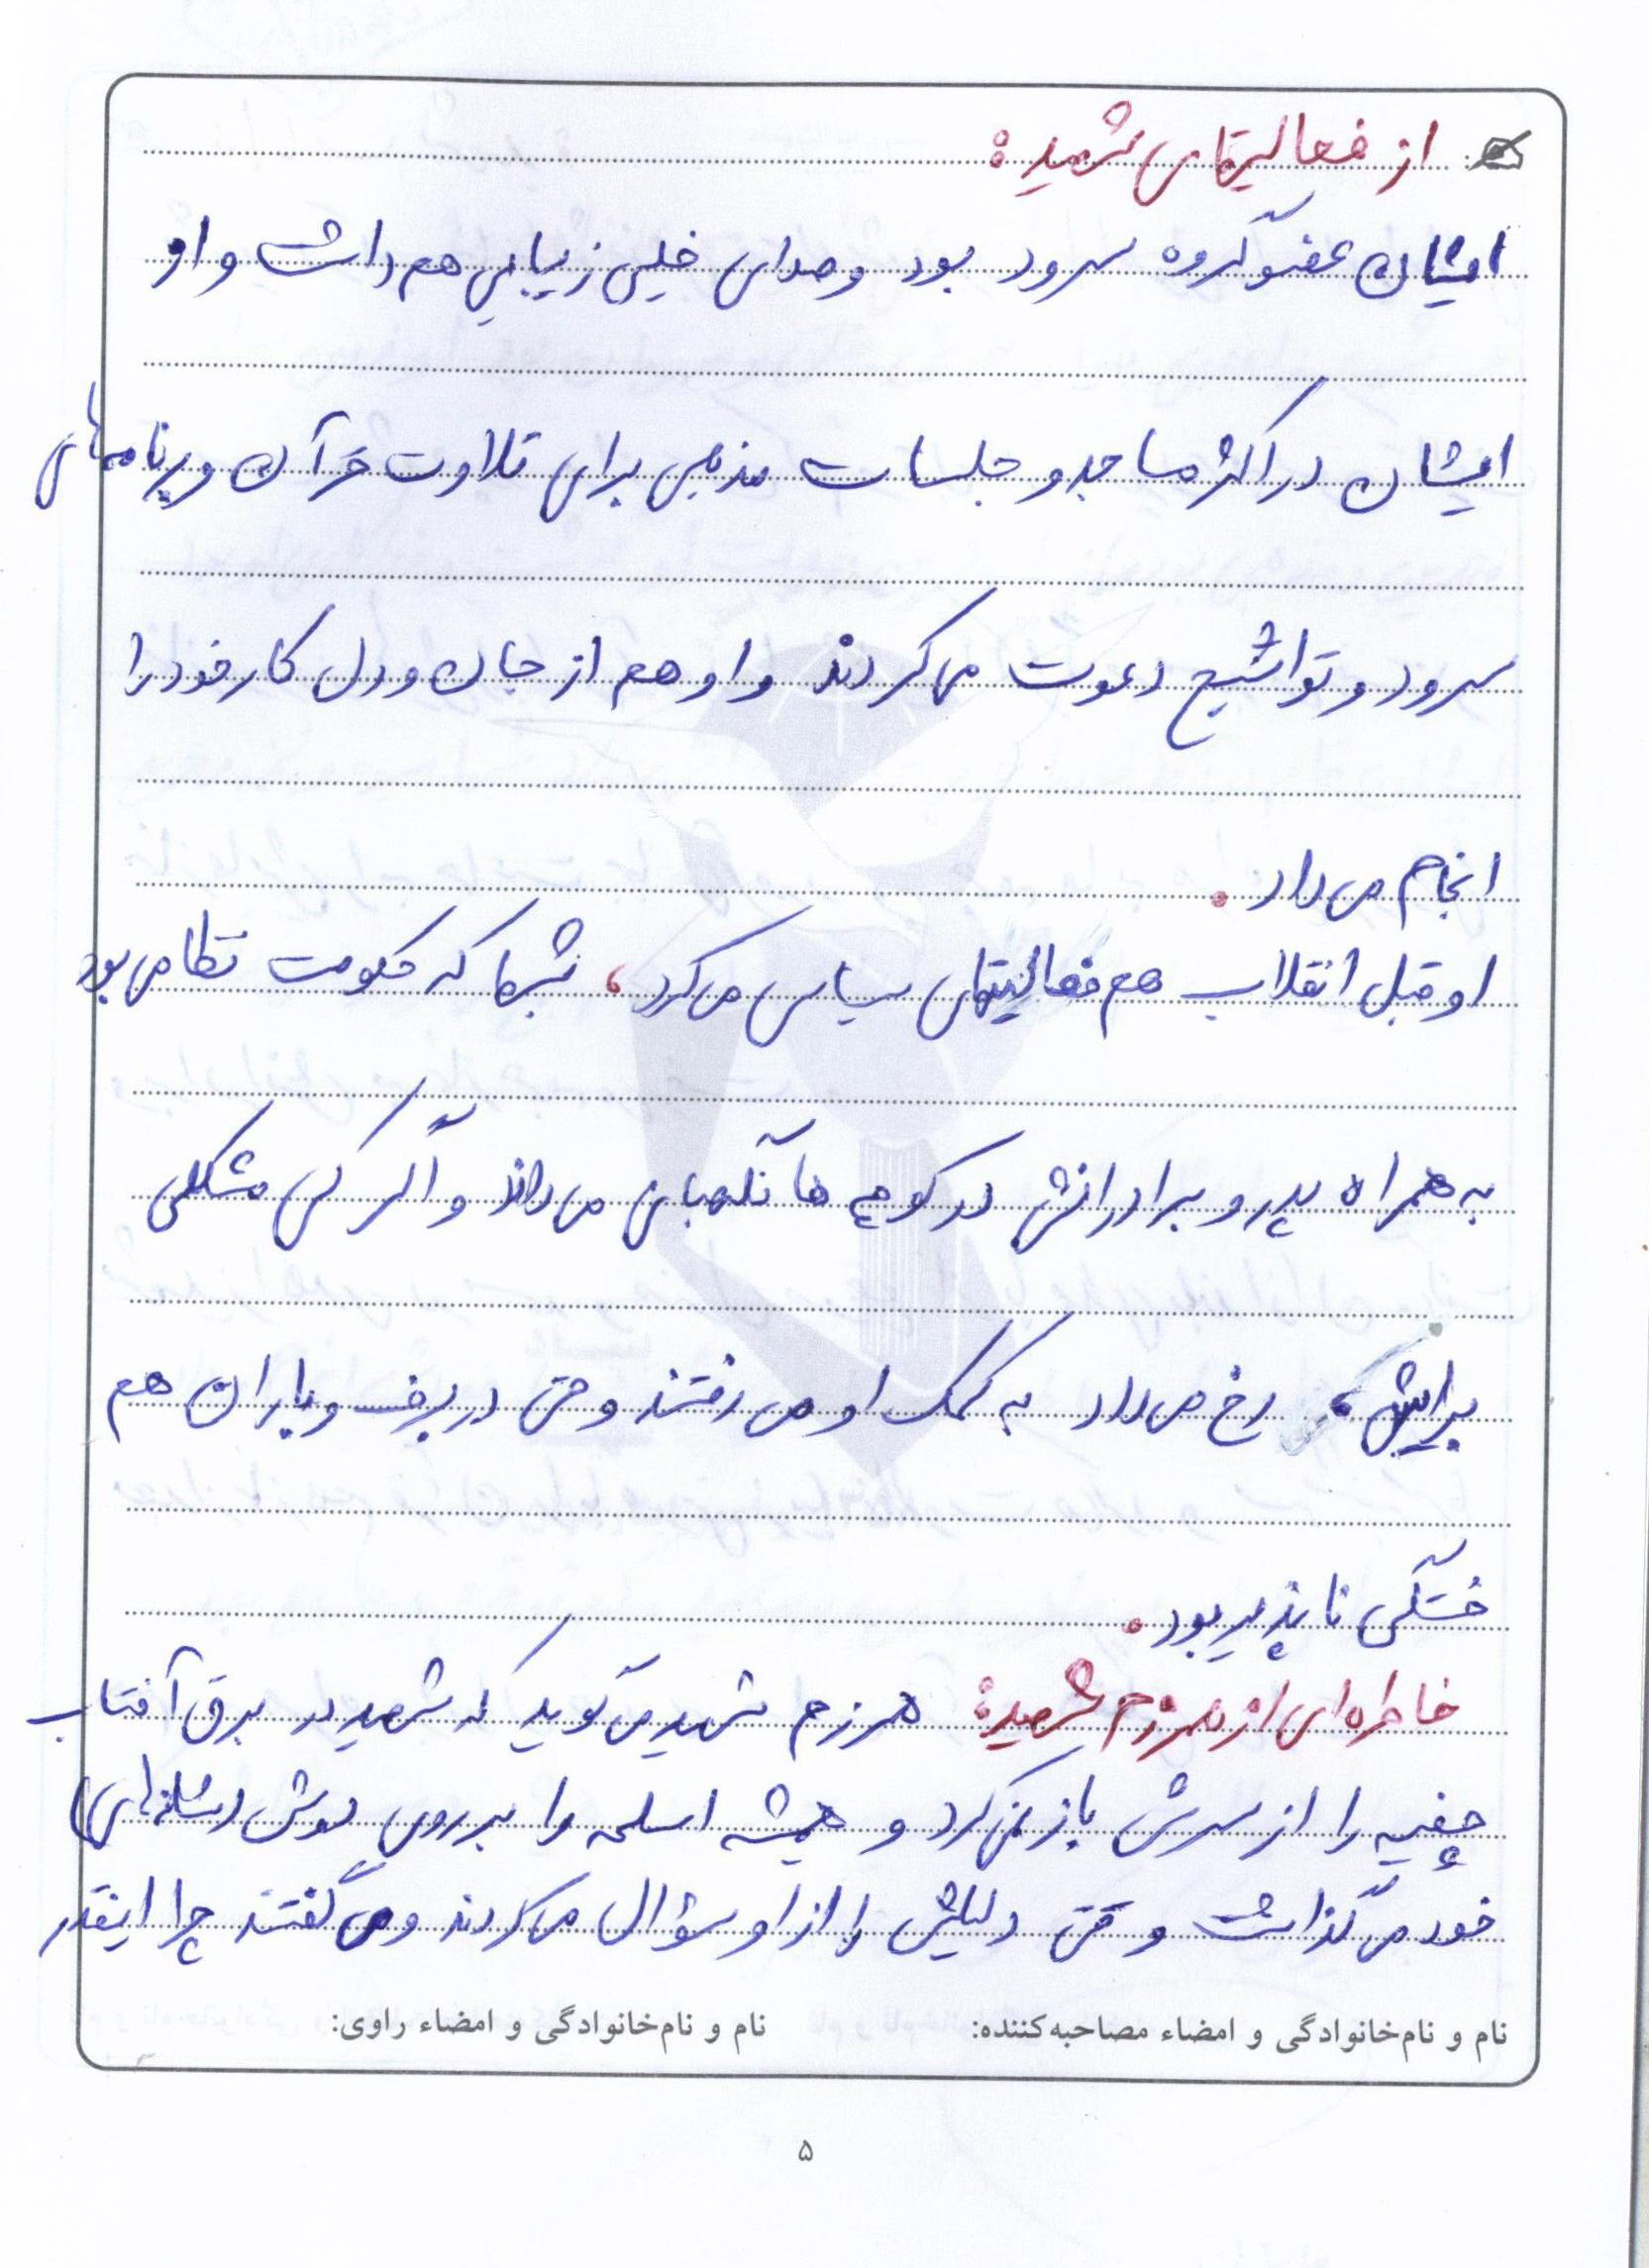 از فعالیتهای شهید:
ایشان عضو گروه سرود بود و صدای خیلی زیبایی هم داشت و او
ایشان در اکثر مساجد و جلسات مذهبی برای تلاوت قرآن و برنامه‌های
سرود و تواشیح دعوت می‌کردند و او هم از جان و دل کار خود را
انجام می‌داد.
او قبل انقلاب هم فعالیتهای سیاسی می‌کرد، شبها که حکومت نظامی بود
به همراه پدر و برادرانش در کوچه ها نگهبانی می‌دادند و اگر کسی مشکلی
برایش رخ می‌داد به کمک او می رفتند و حتی در برف و باران هم
خستگی ناپذیر بود.
خاطره‌ای از همرزم شهید: همرزم شهید می‌گوید که شهید در برق آفتاب
چفیه را از سرش باز نمی‌کرد و همیشه اسلحه را بر روی دوش (شانه‌های)
خود می‌گذاشت وقتی دلیلش را از او سؤال می‌کردند و می‌گفتند چرا اینقدر
نام و نام‌خانوادگی و امضاء مصاحبه‌کننده: نام و نام‌خانوادگی و امضاء راوی:
۵